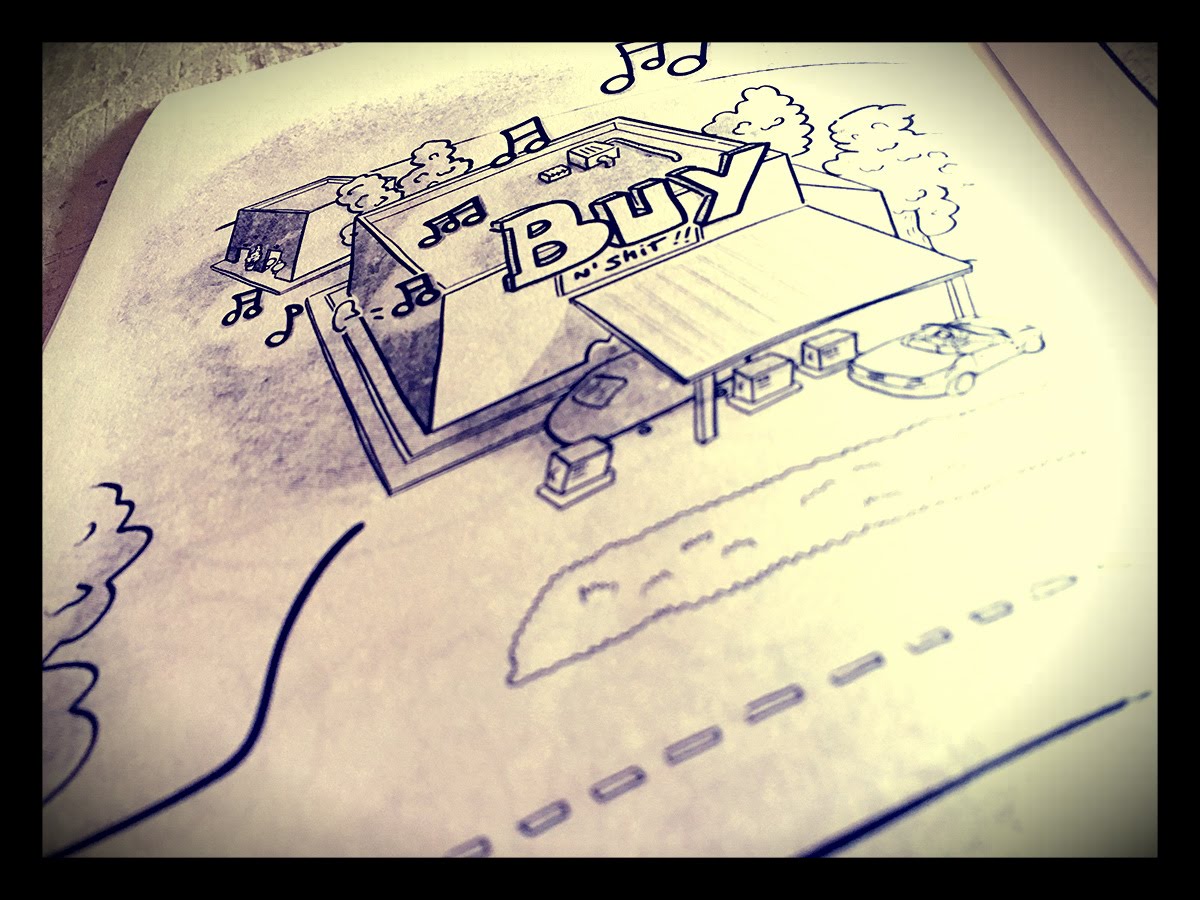 BUY
N' SHIT!!